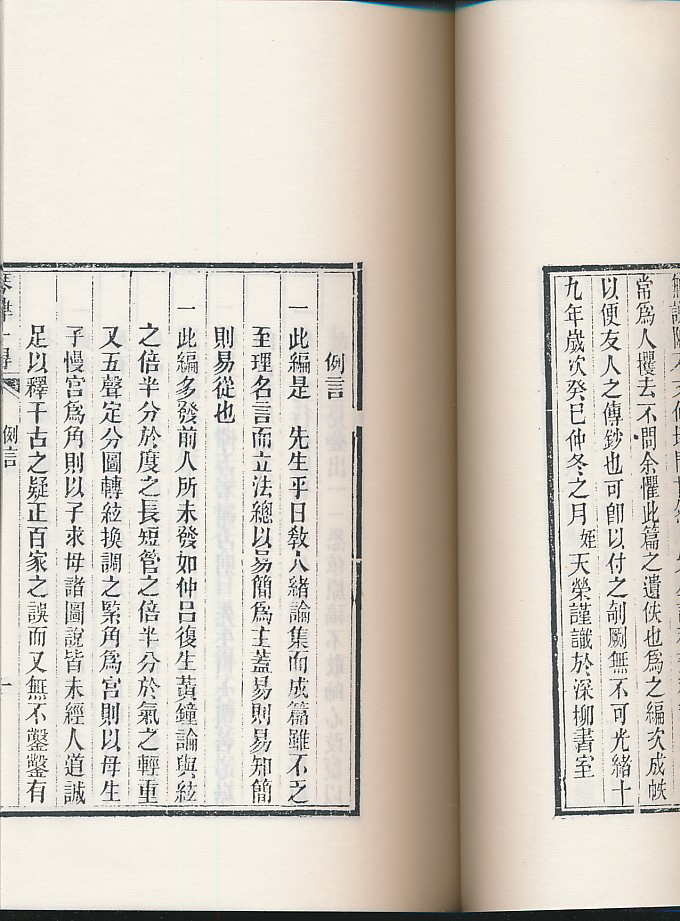 常爲人攫去不問余懼此篇之遺佚也爲之編次成帙
以便友人之傳鈔也可卽以付之剞劂無不可光緒十
九年歲次癸巳仲冬之月姪天榮謹識於深柳書室
例言
一此編是 先生平日敎人緒論集而成篇雖不乏
至理名言而立法總以易簡爲主蓋易則易知簡
則易從也
一此編多發前人所未發如仲呂復生黃鐘論與絃
之倍半分於度之長短管之倍半分於氣之輕重
又五聲定分圖轉絃換調之緊角爲宮則以母生
子慢宮爲角則以子求母諸圖說皆未經人道誠
足以釋千古之疑正百家之誤而又無不鑿鑿有
例言
一